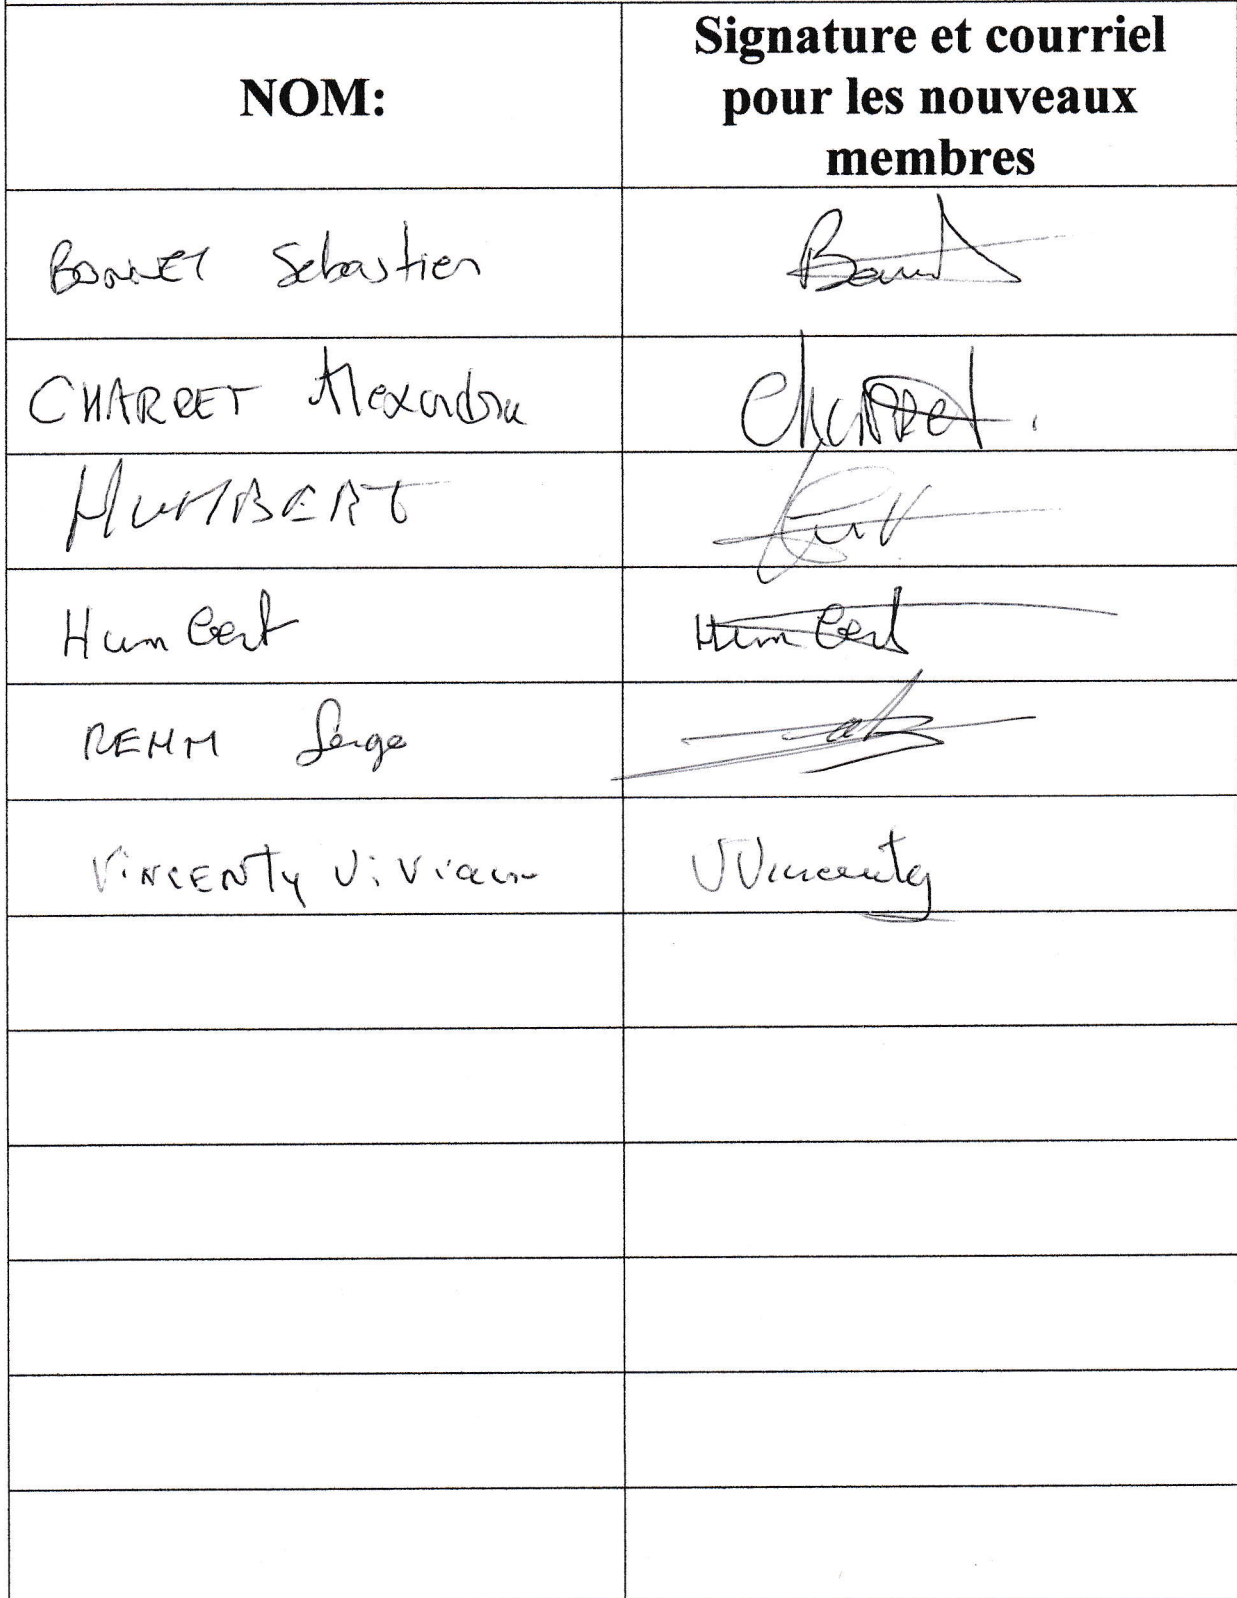 NOM:
Signature et courriel
pour les nouveaux
membres
BONNET Sébastien
CHARRET Alexandra CHARRET.
HUMBERT
Humbert Humbert
REMM Serge
VINCENTy Viviane VVincenty